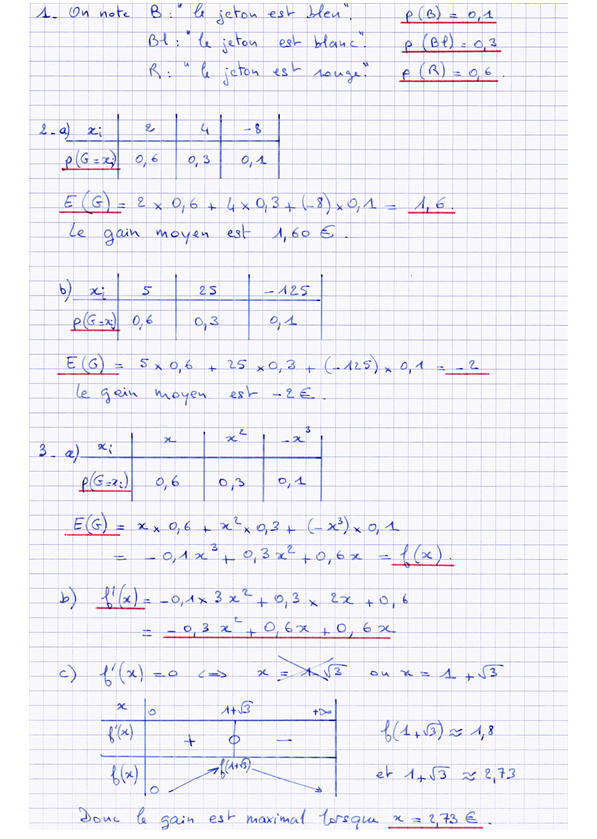 1. On note B : "le jeton est bleu". p(B) = 0,1
Bl : "le jeton est blanc". p(Bl) = 0,3
R : "le jeton est rouge". p(R) = 0,6.
2-a) xi 2 4 -8
p(G=xi) 0,6 0,3 0,1
E(G) = 2 × 0,6 + 4 × 0,3 + (-8) × 0,1 = 1,6.
Le gain moyen est 1,60 €.
b) xi 5 25 -125
p(G=xi) 0,6 0,3 0,1
E(G) = 5 × 0,6 + 25 × 0,3 + (-125) × 0,1 = -2
le gain moyen est -2 €.
3- a) xi x x² -x³
p(G=xi) 0,6 0,3 0,1
E(G) = x × 0,6 + x² × 0,3 + (-x³) × 0,1
= -0,1x³ + 0,3x² + 0,6x = f(x).
b) f'(x) = -0,1 × 3x² + 0,3 × 2x + 0,6
= -0,3x² + 0,6x + 0,6x
c) f'(x) = 0 ⟺ x = 1-√3 ou x = 1 + √3
x 0 1+√3 +∞
f'(x) + 0 - f(1+√3) ≈ 1,8
f(x) 0 f(1+√3) et 1+√3 ≈ 2,73
Donc le gain est maximal lorsque x = 2,73 €.